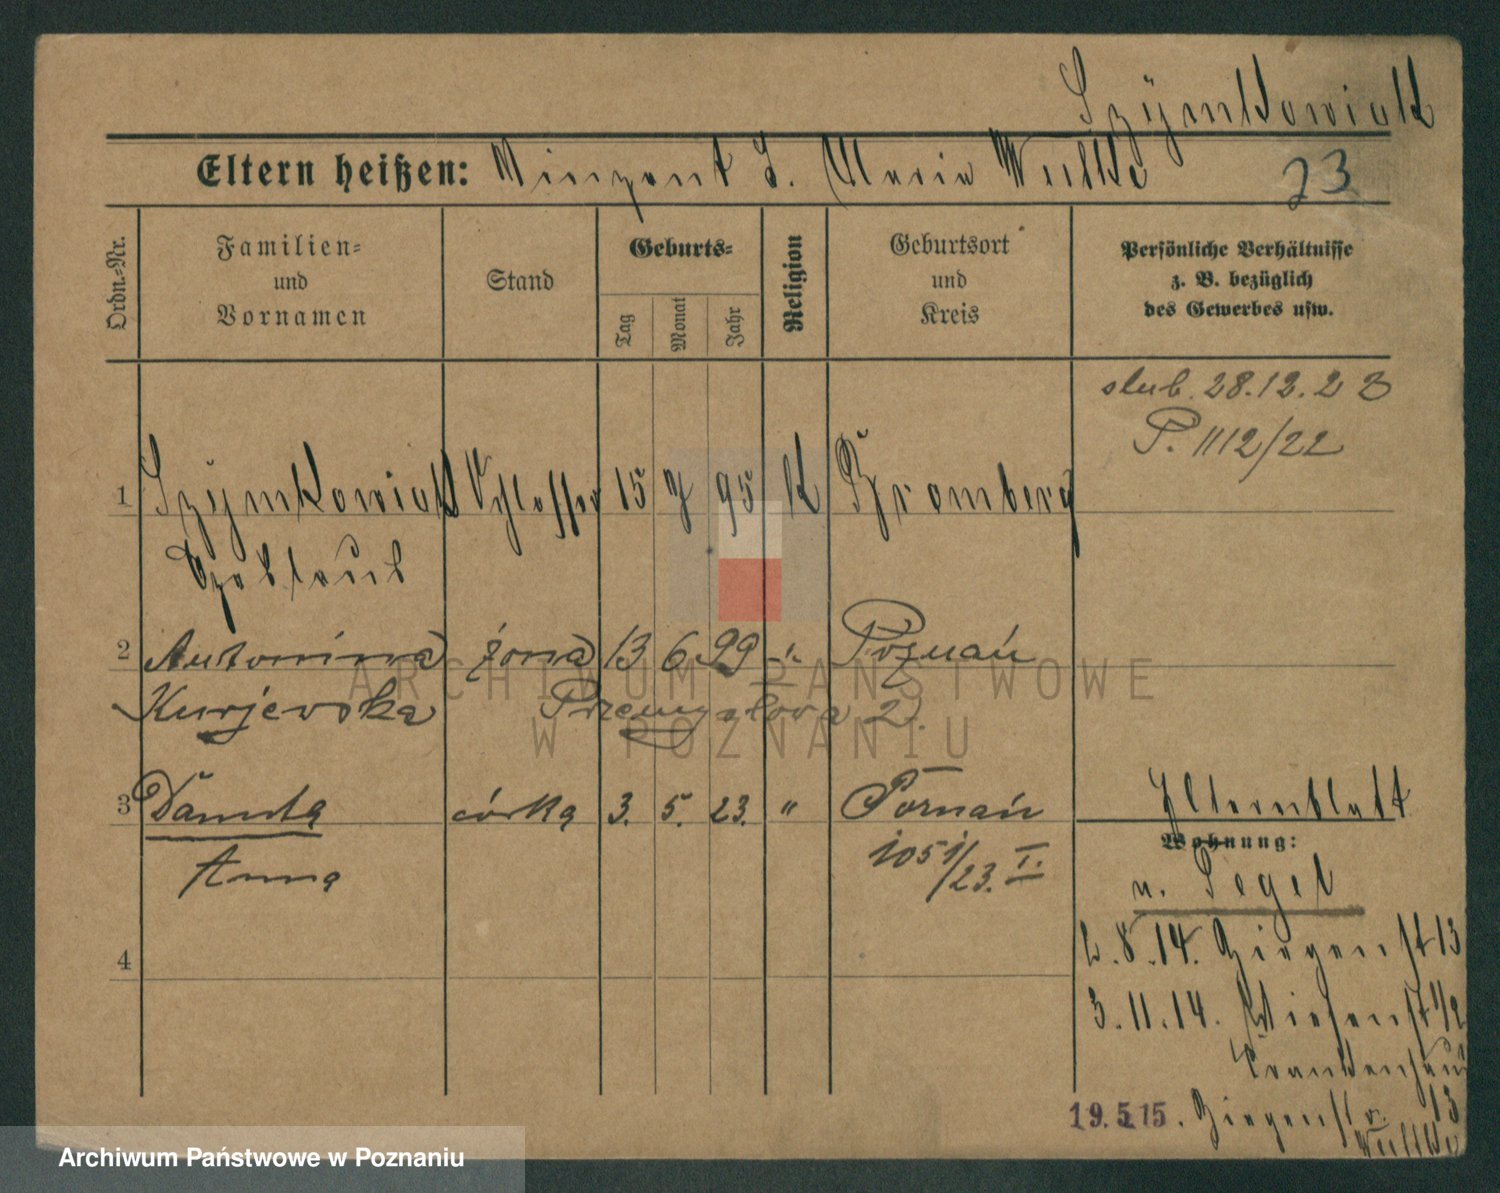 Szymkowiak
Eltern heißen: Vinzent S. Maria Wulke
23
Ordn.-Nr.
Familien-
und
Vornamen
Stand
Geburts-
Tag
Monat
Jahr
Religion
Geburtsort
und
Kreis
Persönliche Verhältnisse
z. B. bezüglich
des Gewerbes usw.
ślub. 28.12.22
P. 1112/22
1 Szymkowiak Schlosser 15 7 95 K Bromberg
2 Antonina żona 13 6 99 Poznań
Przemysłowa 2.
3 Danuta córka 3. 5. 23. " Poznań
Anna
1051/23. I.
Elternblatt
Wohnung:
n. Segel
2.8.14. Ziegenst 13
3.11.14. Wiesenst 1/2
Krankenhaus
19.5.15. Ziegenstr. 13
Wulke
4
ARCHIWUM PAŃSTWOWE
W POZNANIU
Archiwum Państwowe w Poznaniu